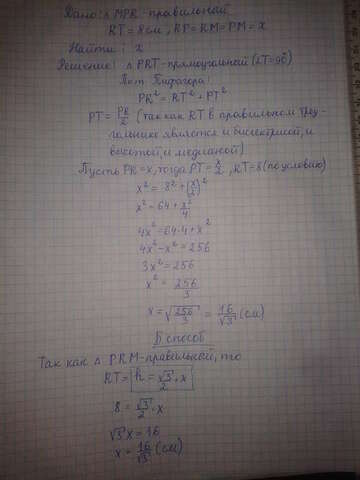 Дано: △ MPR - правильный
RT = 8 см, RP = RM = PM = x
Найти: x
Решение: △ PRT - прямоугольный (∠T = 90°)
По т. Пифагора:
PR² = RT² + PT²
PT = PR/2 (так как RT в правильном треу-
гольнике является и биссектрисой, и
высотой, и медианой)
Пусть PR = x, тогда PT = x/2, RT = 8 (по условию)
x² = 8² + (x/2)²
x² = 64 + x²/4
4x² = 64·4 + x²
4x² - x² = 256
3x² = 256
x² = 256/3
x = √(256/3) = 16/√3 (см)
Б способ
Так как △ PRM - правильной, то
RT = h = √3/2 · x
8 = √3/2 · x
√3 x = 16
x = 16/√3 (см)